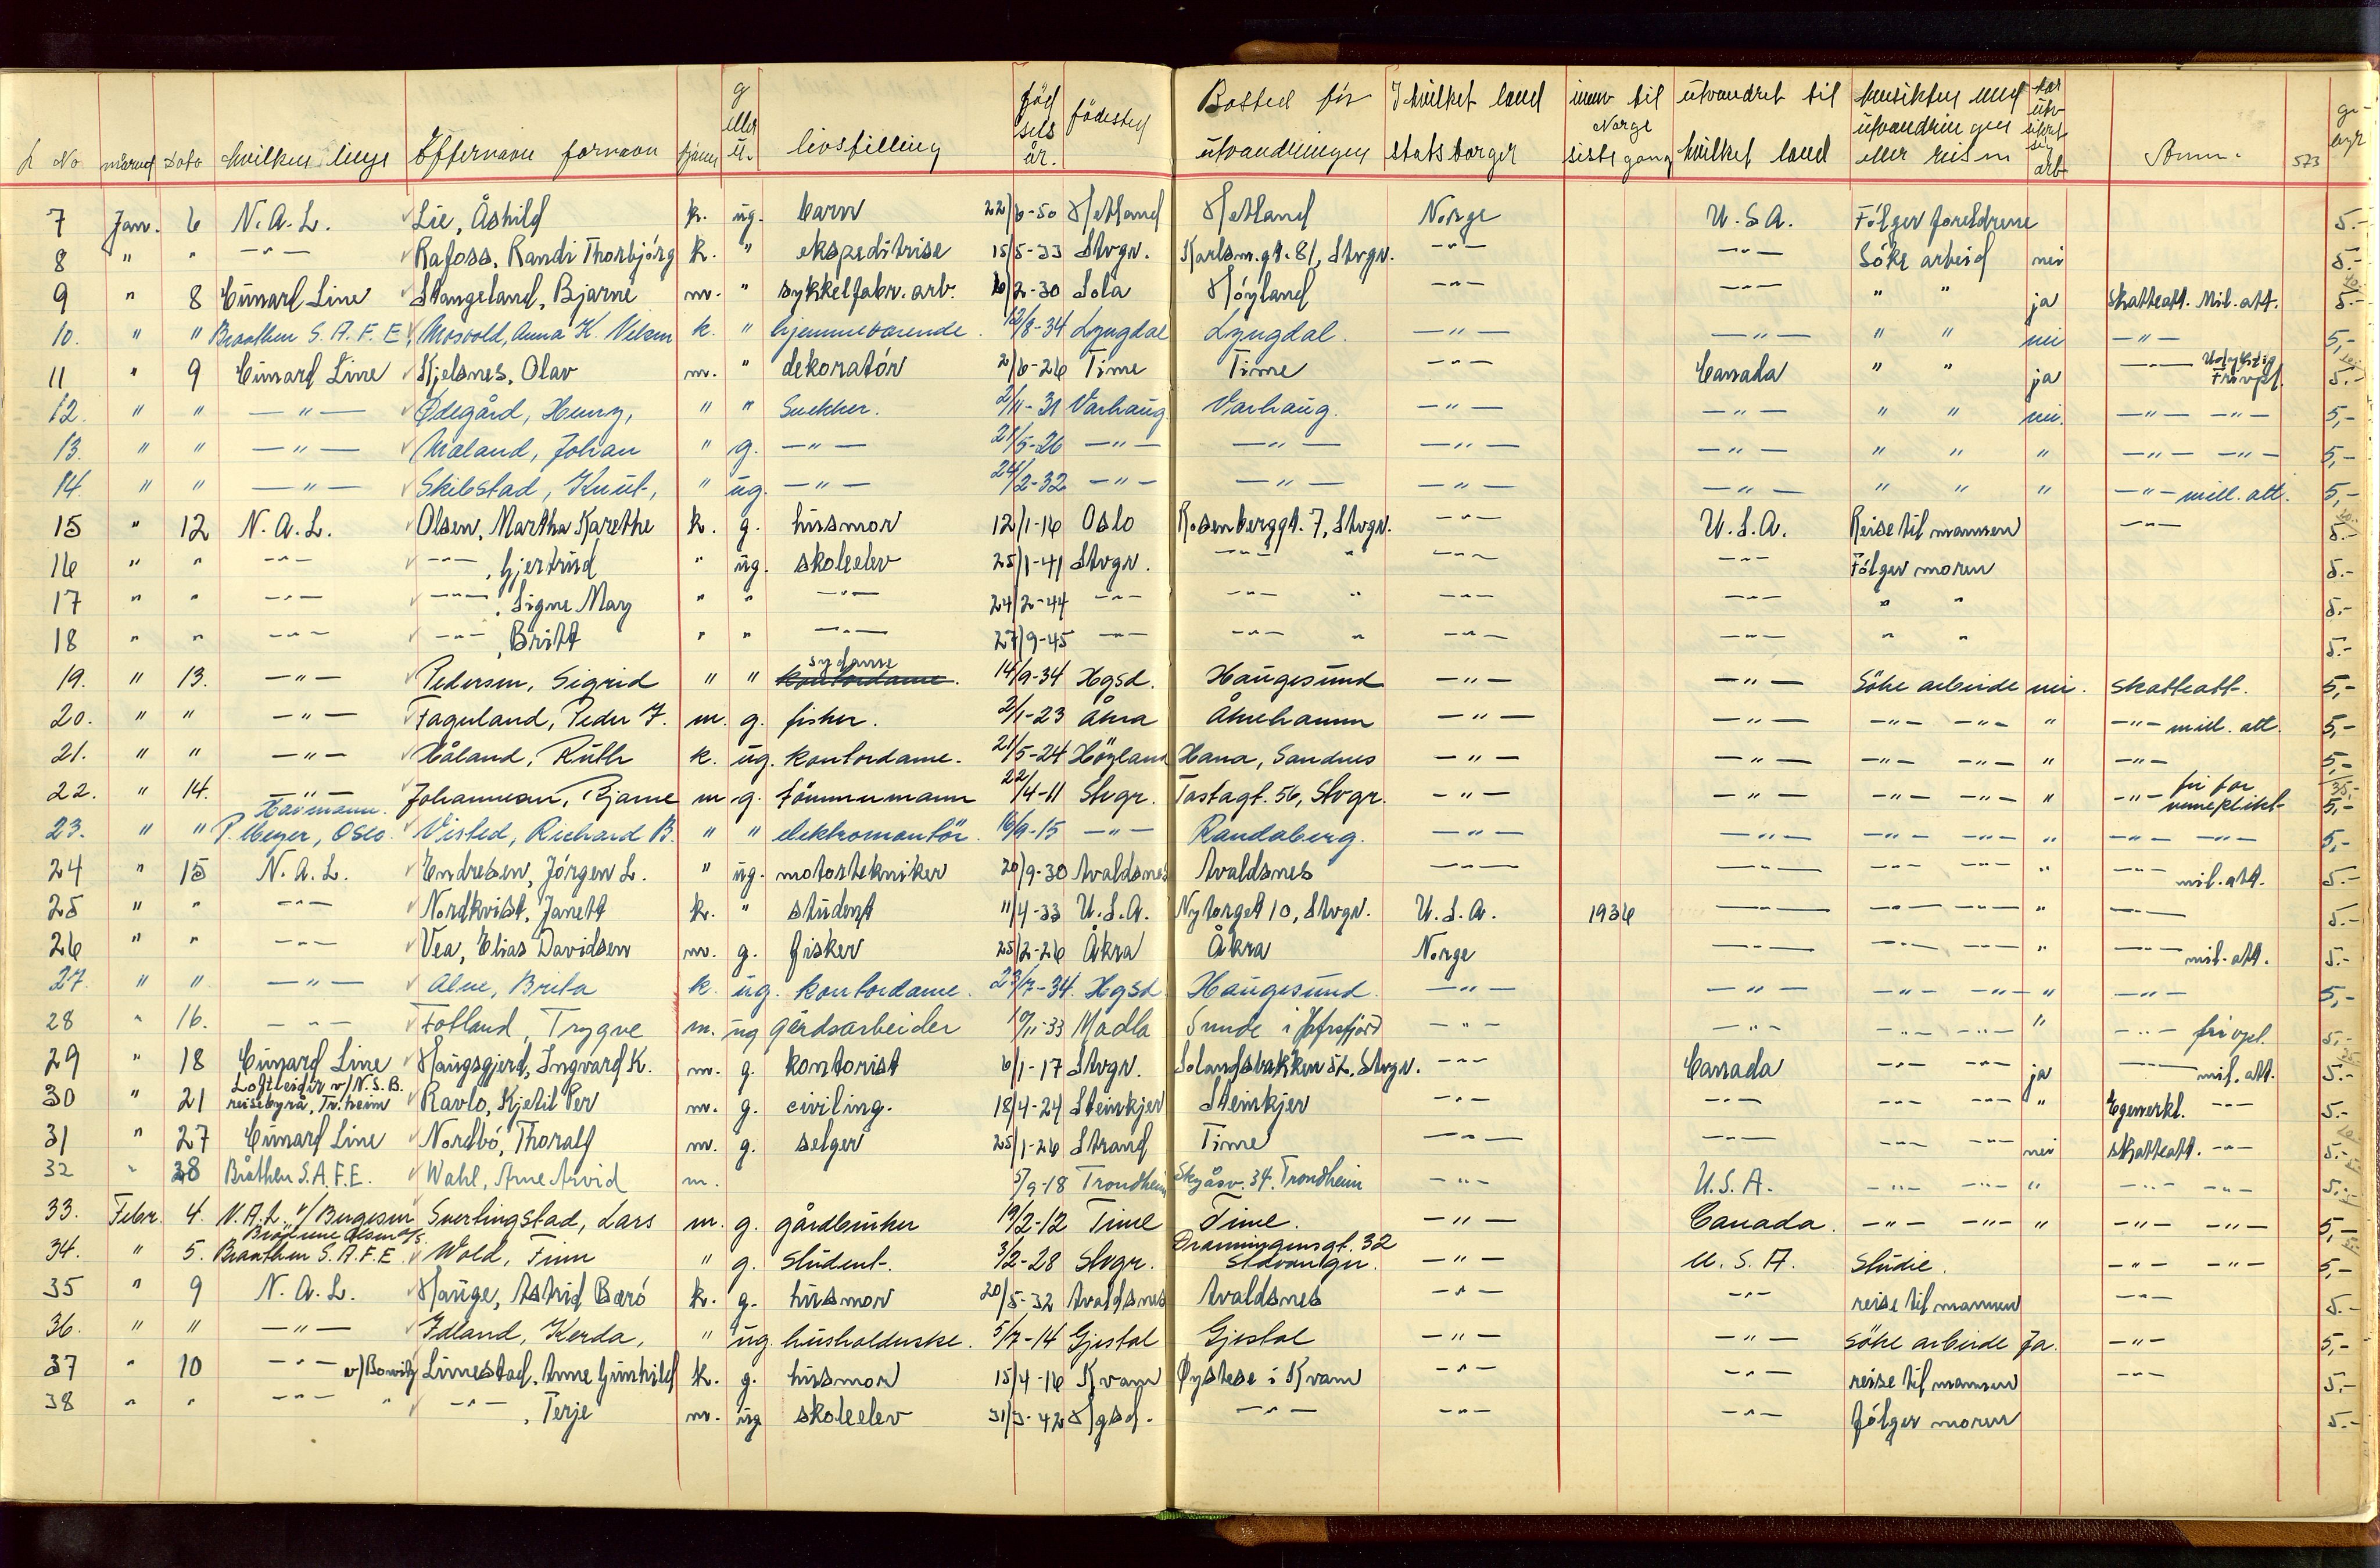 L No måned Dato hvilken linje Efternavn fornavn kjønn g eller u. livsstilling fødselsår. fødested Bosted før utvandringen I hvilket land statsborger innv til Norge siste gang utvandret til hvilket land hensikten med utvandringen eller reisen har utv sikret sig arb Anm. 573 gebyr
7 Jan. 6 N.A.L. Lie, Åshild k. ug. barn 22/6-50 Hetland Hetland Norge U.S.A. Følger foreldrene 5.-
8 " " -"- Rafoss, Randi Thorbjørg k. " ekspeditrise 15/5-33 Stvgr. Karlsm.gt. 81, Stvgr. -"- -"- Søke arbeid nei 5.-
9 " 8 Cunard Line Stangeland, Bjarne m. " sykkelfabr. arb. 10/2-30 Sola Høyland -"- -"- " " ja Skatteatt. Mil. att. 5.-
10. " " Braathen S.A.F.E. Mosvold, Anna K. Nilsen k. " hjemmeværende. 12/8-34 Lyngdal Lyngdal. -"- -"- " " nei -"- 5,-
11 " 9 Cunard Line Kjelsnes, Olav m. " dekoratør 2/6-26 Time Time -"- Canada " " ja -"- Udyktig Frivpl. 5.-
12. " " -"- Ødegård, Henry, " " Snekker. 2/11-31 Varhaug Varhaug. -"- -"- " " nei. -"- -"- 5,-
13. " " -"- Maland, Johan " g. -"- 21/5-26 -"- -"- -"- -"- " " " -"- -"- 5,-
14. " " -"- Skibstad, Knut, " ug. -"- 24/2-32 -"- -"- -"- -"- " " " -"- mill. att. 5,-
15 " 12 N.A.L. Olsen, Martha Karethe k. g. husmor 12/1-16 Oslo Rosenberggt. 7, Stvgr. -"- U.S.A. Reise til mannen -"- 5.-
16 " " -"- -"-, Gjertrud " ug. skoleelev 25/1-41 Stvgr. -"- " -"- -"- Følger moren 5.-
17 " " -"- -"-, Signe May " " -"- 24/2-44 -"- -"- " -"- -"- " " 5.-
18 " " -"- -"-, Britt " " -"- 27/9-45 -"- -"- " -"- -"- " " 5.-
19. " 13. -"- Pedersen, Sigrid " " kontordame. sydame 14/9-34 Hgsd. Haugesund -"- -"- Søke arbeide nei. Skatteatt. 5,-
20. " " -"- Fageland, Peder J. m. g. fisker. 2/1-23 Åkra Åkrehamn -"- -"- -"- -"- " -"- mill. att. 5,-
21. " " -"- Håland, Ruth k. ug. kontordame. 21/5-24 Höyland Hana, Sandnes -"- -"- -"- -"- " -"- 5,-
22. " 14. -"- Johannesen, Bjarne m. g. tömmermann 22/4-11 Stvgr. Tastagt. 56, Stvgr. -"- -"- -"- -"- " -"- fri for verneplikt 5,-
23. " " Havmann. P. Meyer, Oslo. Visted, Richard B. " " elektromontör. 16/9-15 -"- Randaberg. -"- -"- -"- -"- " -"- -"- 5,-
24 " 15 N.A.L. Endresen, Jørgen L. " ug. motortekniker 20/9-30 Avaldsnes Avaldsnes -"- -"- -"- -"- " -"- mil. att. 5.-
25 " " -"- Nordkvist, Janett k. " student 11/4-33 U.S.A. Nytorget 10, Stvgr. U.S.A. 1936 -"- -"- -"- " -"- 5.-
26 " " -"- Vea, Elias Davidsen m. g. fisker 25/2-26 Åkra Åkra Norge -"- -"- -"- " -"- mil. att. 5.-
27. " " -"- Alne, Brita k. ug. kontordame. 23/7-34. Hgsd Haugesund. -"- -"- -"- -"- " -"- 5,-
28 " 16. -"- Fotland, Trygve m. ug gårdsarbeider 10/11-33 Madla Sunde i Hafrsfjord -"- -"- -"- -"- " -"- frivpl. 5,-
29 " 18 Cunard Line Haugsgjerd, Ingvard K. m. g. kontorist 6/1-17 Stvgr. Solandsbakken 52, Stvgr. -"- Canada -"- -"- ja -"- mil. att. 5.-
30 " 21 Loftleidir v/N.S.B. reisebyrå, Tr.heim Ravlo, Kjetil Per m. g. civiling. 18/4-24 Steinkjer Steinkjer -"- -"- -"- -"- " Egenerkl. -"- 5.-
31 " 27 Cunard Line Nordbø, Thoralf m. g. selger 25/1-26 Strand Time -"- -"- -"- -"- nei Skatteatt. -"- 5.-
32 " 28 Bråthen S.A.F.E. Wahl, Arne Arvid m. 5/9-18 Trondheim Skyåsv. 34. Trondheim -"- U.S.A. -"- -"- " -"- -"- 5,-
33. Febr. 4. N.A.L. v/ Bergesen Sverlingstad, Lars m. g. gårdbruker 19/2-12 Time Time. -"- Canada. -"- -"- " -"- -"- 5,-
34. " 5. Brødrene Olsen A/S. Braathen S.A.F.E. Wold, Finn " g. Student. 3/2-28 Stvgr. Dronningensgt. 32 Stavanger. -"- U.S.A. Studie. -"- -"- 5,-
35 " 9 N.A.L. Hauge, Astrid Barø k. g. husmor 20/5-32 Avaldsnes Avaldsnes -"- -"- reise til mannen -"- 5.-
36. " " -"- Idland, Kerda, " ug. husholderske. 5/7-14 Gjestal Gjestal -"- -"- Søke arbeide Ja. -"- 5,-
37 " 10 -"- v/Bowitz Limestad, Anne Gunhild k. g. husmor 15/4-16 Kvam Øystese i Kvam -"- -"- reise til mannen -"- 5,-
38 " " -"- " -"-, Terje m. ug skoleelev 31/3-42 Hgsd. -"- -"- -"- følger moren 5.-